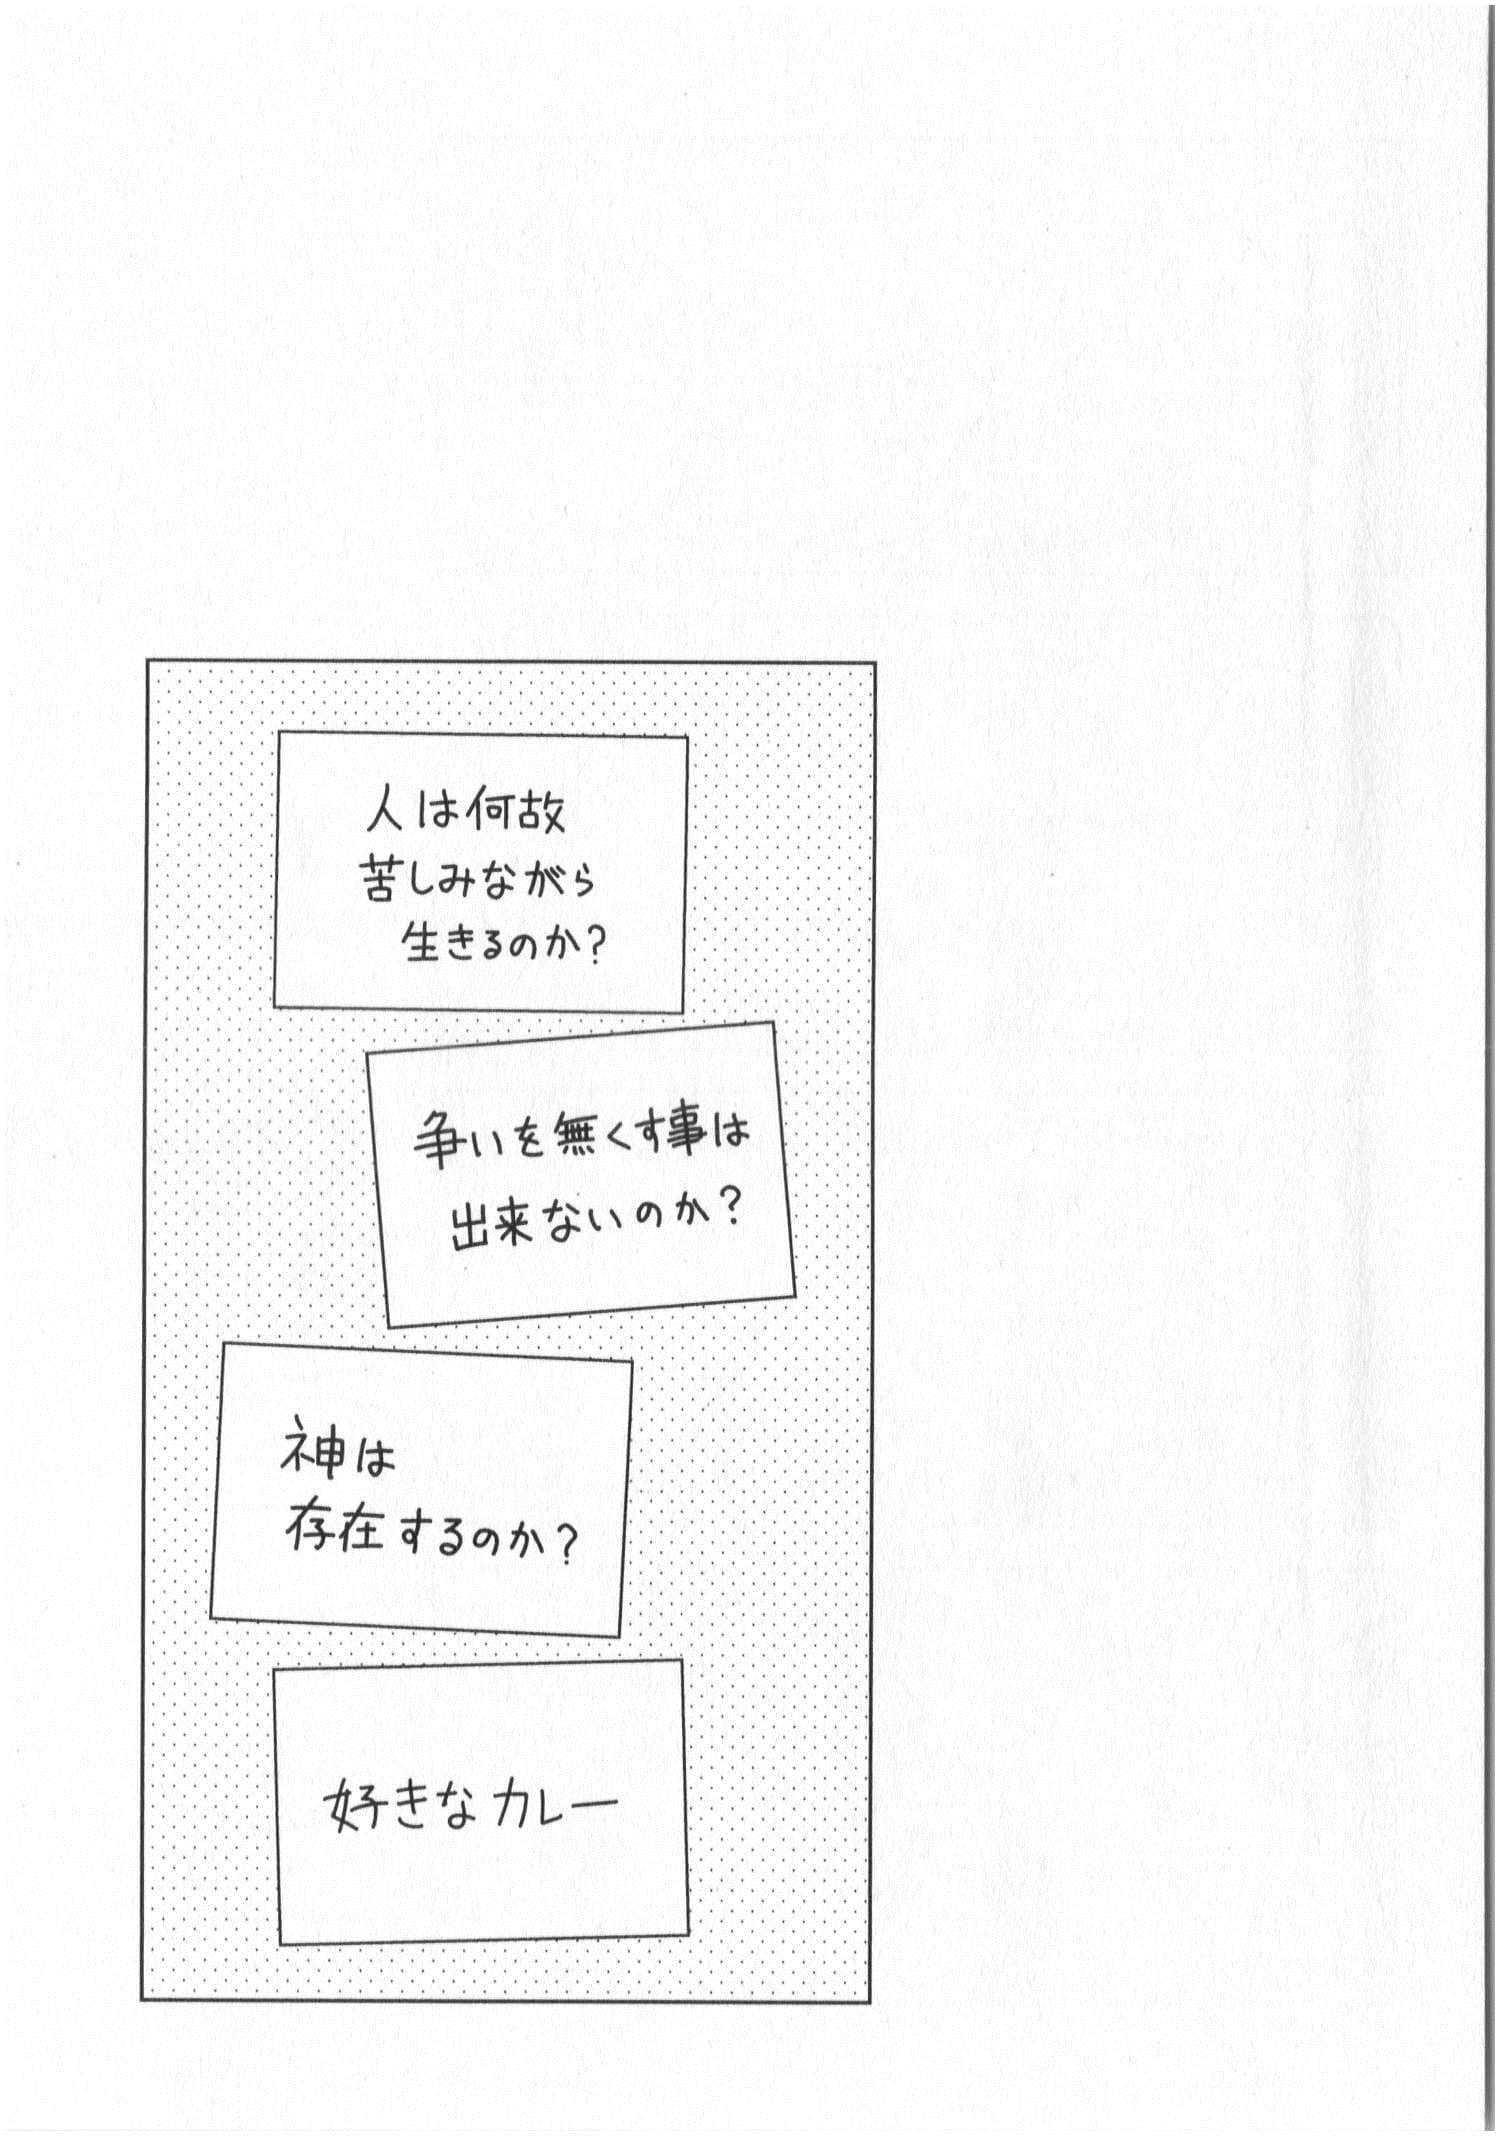 人は何故
苦しみながら
生きるのか?
争いを無くす事は
出来ないのか?
神は
存在するのか?
好きなカレー